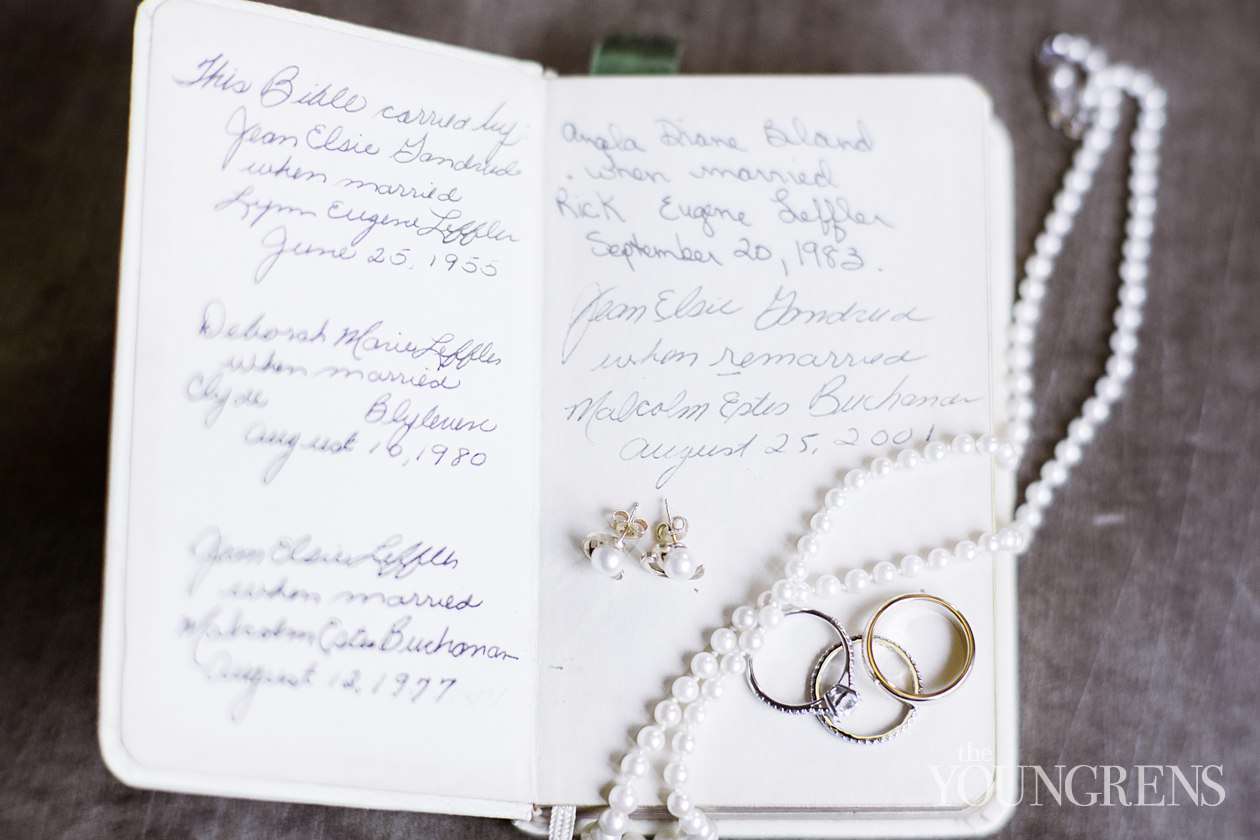 This Bible carried by:
Jean Elsie Gandrud
when married
Lynn Eugene Leffler
June 25, 1955
Deborah Marie Leffler
when married
Clyde Blyleven
August 16, 1980
Jean Elsie Leffler
when married
Malcolm Estes Buchanan
August 12, 1977
Angla Diane Biland
. when married
Rick Eugene Leffler
September 20, 1983.
Jean Elsie Gandrud
when remarried
Malcolm Estes Buchanan
August 25, 2001
the
YOUNGRENS